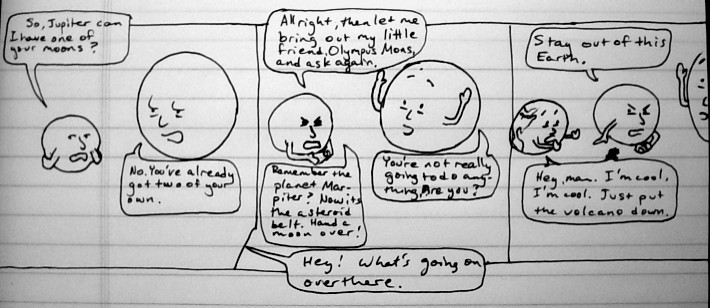 So, Jupiter can
I have one of
your moons?
No. You've already
got two of your
own.
Allright, then let me
bring out my little
friend, Olympus Mons,
and ask again.
Remember the
planet Mar-
piter? Now its
the asteroid
belt. Hand a
moon over!
You're not really
going to do any-
thing, Are you?
Hey! What's going on
over there.
Stay out of this
Earth.
Hey, man. I'm cool,
I'm cool. Just put
the volcano down.